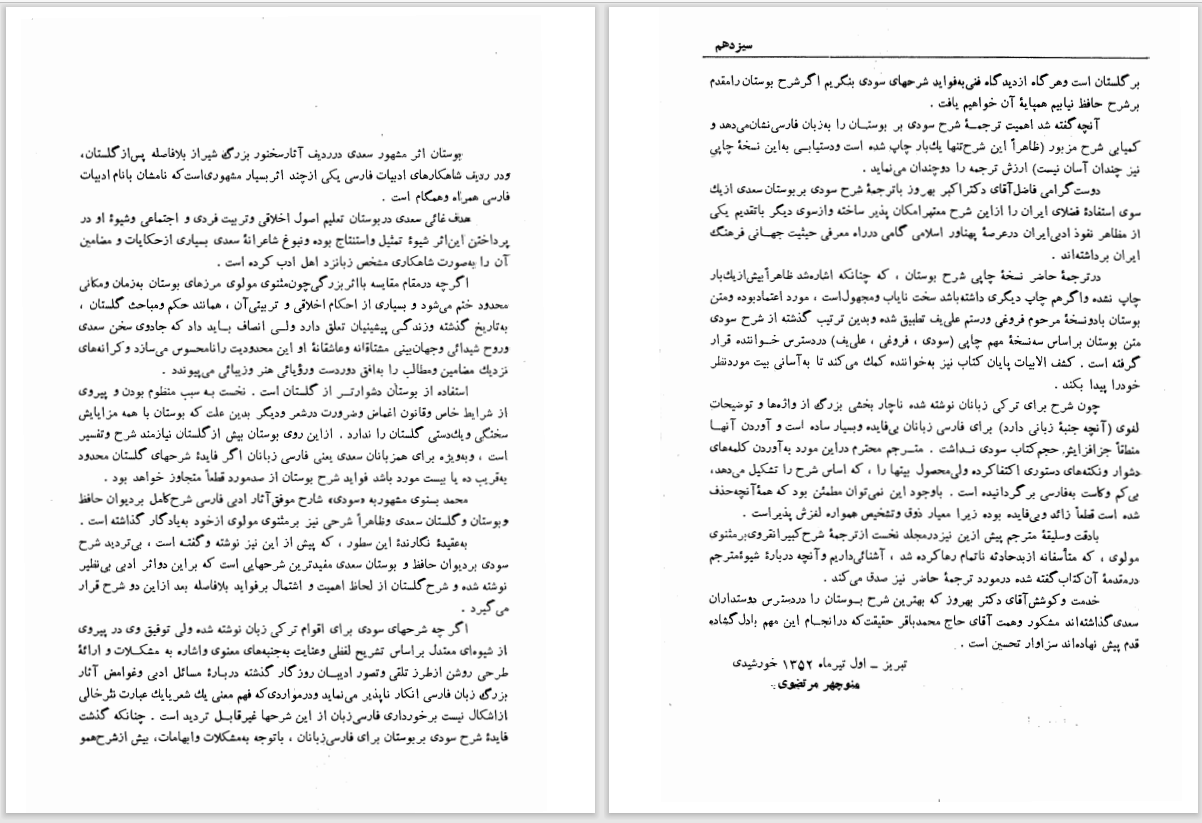 بوستان اثر مشهور سعدی درردیف آثارسخنور بزرگ شیراز بلافاصله پس‌ازگلستان،
ودر ردیف شاهکارهای ادبیات فارسی یکی ازچند اثربسیار مشهوری‌است‌که نامشان بانام ادبیات
فارسی همراه وهمگام است .
هدف غائی سعدی دربوستان تعلیم اصول اخلاقی وتربیت فردی و اجتماعی وشیوهٔ او در
پرداختن این‌اثر شیوهٔ تمثیل واستنتاج بوده ونبوغ شاعرانهٔ سعدی بسیاری ازحکایات و مضامین
آن را به‌صورت شاهکاری مشخص زبانزد اهل ادب کرده است .
اگرچه درمقام مقایسه بااثربزرگی‌چون‌مثنوی مولوی مرزهای بوستان به‌زمان ومکانی
محدود ختم می‌شود و بسیاری از احکام اخلاقی و تربیتی‌آن ، همانند حکم ومباحث گلستان ،
به‌تاریخ گذشته وزندگی پیشینیان تعلق دارد ولی انصاف باید داد که جادوی سخن سعدی
وروح شیدائی وجهان‌بینی مشتاقانه وعاشقانهٔ او این محدودیت رانامحسوس می‌سازد وکرانه‌های
نزدیك مضامین ومطالب را به‌افق دوردست ورؤیائی هنر وزیبائی می‌پیوندد .
استفاده از بوستان دشوارتر از گلستان است . نخست به سبب منظوم بودن و پیروی
از شرایط خاص وقانون اغماض وضرورت درشعر ودیگر بدین علت که بوستان با همه مزایایش
سختگی ویك‌دستی گلستان را ندارد . ازاین روی بوستان بیش ازگلستان نیازمند شرح وتفسیر
است ، وبه‌ویژه برای همزبانان سعدی یعنی فارسی زبانان اگر فایدهٔ شرحهای گلستان محدود
به‌قریب ده یا بیست مورد باشد فواید شرح بوستان از صدمورد قطعاً متجاوز خواهد بود .
محمد بسنوی مشهوربه «سودی» شارح موفق‌آثار ادبی فارسی شرح‌کامل بردیوان حافظ
وبوستان وگلستان سعدی وظاهراً شرحی نیز برمثنوی مولوی ازخود به‌یادگار گذاشته است .
به‌عقیدهٔ نگارندهٔ این سطور ، که پیش از این نیز نوشته وگفته است ، بی‌تردید شرح
سودی بردیوان حافظ و بوستان سعدی مفیدترین شرحهایی است که براین دواثر ادبی بی‌نظیر
نوشته شده و شرح‌گلستان از لحاظ اهمیت و اشتمال برفواید بلافاصله بعد ازاین دو شرح قرار
می‌گیرد .
اگرچه شرحهای سودی برای اقوام ترکی زبان نوشته شده ولی توفیق وی در پیروی
از شیوه‌ای معتدل براساس تشریح لفظی وعنایت به‌جنبه‌های معنوی واشاره به مشکلات و ارائهٔ
طرحی روشن ازطرز تلقی وتصور ادیبان روزگار گذشته دربارهٔ مسائل ادبی وغوامض آثار
بزرگ زبان فارسی انکار ناپذیر می‌نماید ودرمواردی‌که فهم معنی یك شعریایك عبارت نثرخالی
ازاشکال نیست برخورداری فارسی‌زبان از این شرحها غیرقابل تردید است . چنانکه گذشت
فایدهٔ شرح سودی بربوستان برای فارسی‌زبانان ، باتوجه به‌مشکلات وابهامات، بیش ازشرح‌همو
سیزدهم
برگلستان است وهرگاه ازدیدگاه فنی‌به‌فواید شرحهای سودی بنگریم اگرشرح بوستان رامقدم
برشرح حافظ نیابیم همپایهٔ آن خواهیم یافت .
آنچه‌گفته شد اهمیت ترجمهٔ شرح سودی بر بوستان را به‌زبان فارسی‌نشان‌می‌دهد و
کمیابی شرح مزبور (ظاهراً این شرح‌تنها یك‌بار چاپ شده است ودستیابی به‌این نسخهٔ چاپی
نیز چندان آسان نیست) ارزش ترجمه را دوچندان می‌نماید .
دوست‌گرامی فاضل‌آقای دکتراکبر بهروز باترجمهٔ شرح سودی بربوستان سعدی ازیك
سوی استفادهٔ فضلای ایران را ازاین شرح معتبرامکان پذیر ساخته وازسوی دیگر باتقدیم یکی
از مظاهر نفوذ ادبی‌ایران درعرصهٔ پهناور اسلامی گامی درراه معرفی حیثیت جهانی فرهنگ
ایران برداشته‌اند .
درترجمهٔ حاضر نسخهٔ چاپی شرح بوستان ، که چنانکه اشاره‌شد ظاهراً‌بیش‌ازیك‌بار
چاپ نشده واگرهم چاپ دیگری داشته‌باشد سخت نایاب ومجهول‌است ، مورد اعتمادبوده ومتن
بوستان بادونسخهٔ مرحوم فروغی ورستم علی‌یف تطبیق شده وبدین ترتیب گذشته از شرح سودی
متن بوستان براساس سه‌نسخهٔ مهم چاپی (سودی ، فروغی ، علی‌یف) دردسترس خواننده قرار
گرفته است . کشف الابیات پایان کتاب نیز به‌خواننده کمك می‌کند تا به‌آسانی بیت موردنظر
خودرا پیدا بکند .
چون شرح برای ترکی زبانان نوشته شده ناچار بخشی بزرگ از واژه‌ها و توضیحات
لغوی (آنچه جنبهٔ زبانی دارد) برای فارسی زبانان بی‌فایده وبسیار ساده است و آوردن آنها
منطقاً جزافزایش حجم‌کتاب سودی نداشت . مترجم محترم دراین مورد به‌آوردن کلمه‌های
دشوار ونکته‌های دستوری اکتفاکرده ولی‌محصول بیتها را ، که اساس شرح را تشکیل می‌دهد،
بی‌کم وکاست به‌فارسی برگردانیده است . باوجود این نمی‌توان مطمئن بود که همهٔ‌آنچه‌حذف
شده است قطعاً زائد وبی‌فایده بوده زیرا معیار ذوق وتشخیص همواره لغزش پذیراست .
بادقت وسلیقهٔ مترجم پیش ازین نیزدرمجلد نخست ازترجمهٔ شرح‌کبیرانقروی‌برمثنوی
مولوی ، که متأسفانه ازبدحادثه ناتمام رهاکرده شد ، آشنائی‌داریم وآنچه دربارهٔ شیوهٔ‌مترجم
درمقدمهٔ آن‌کتاب‌گفته شده درمورد ترجمهٔ حاضر نیز صدق می‌کند .
خدمت وکوشش‌آقای دکتر بهروز که بهترین شرح بوستان را دردسترس دوستداران
سعدی‌گذاشته‌اند مشکور وهمت آقای حاج محمدباقر حقیقت‌که درانجام این مهم بادل‌گشاده
قدم پیش نهاده‌اند سزاوار تحسین است .
تبریز ــ اول تیرماه ۱۳۵۲ خورشیدی
منوچهر مرتضوی